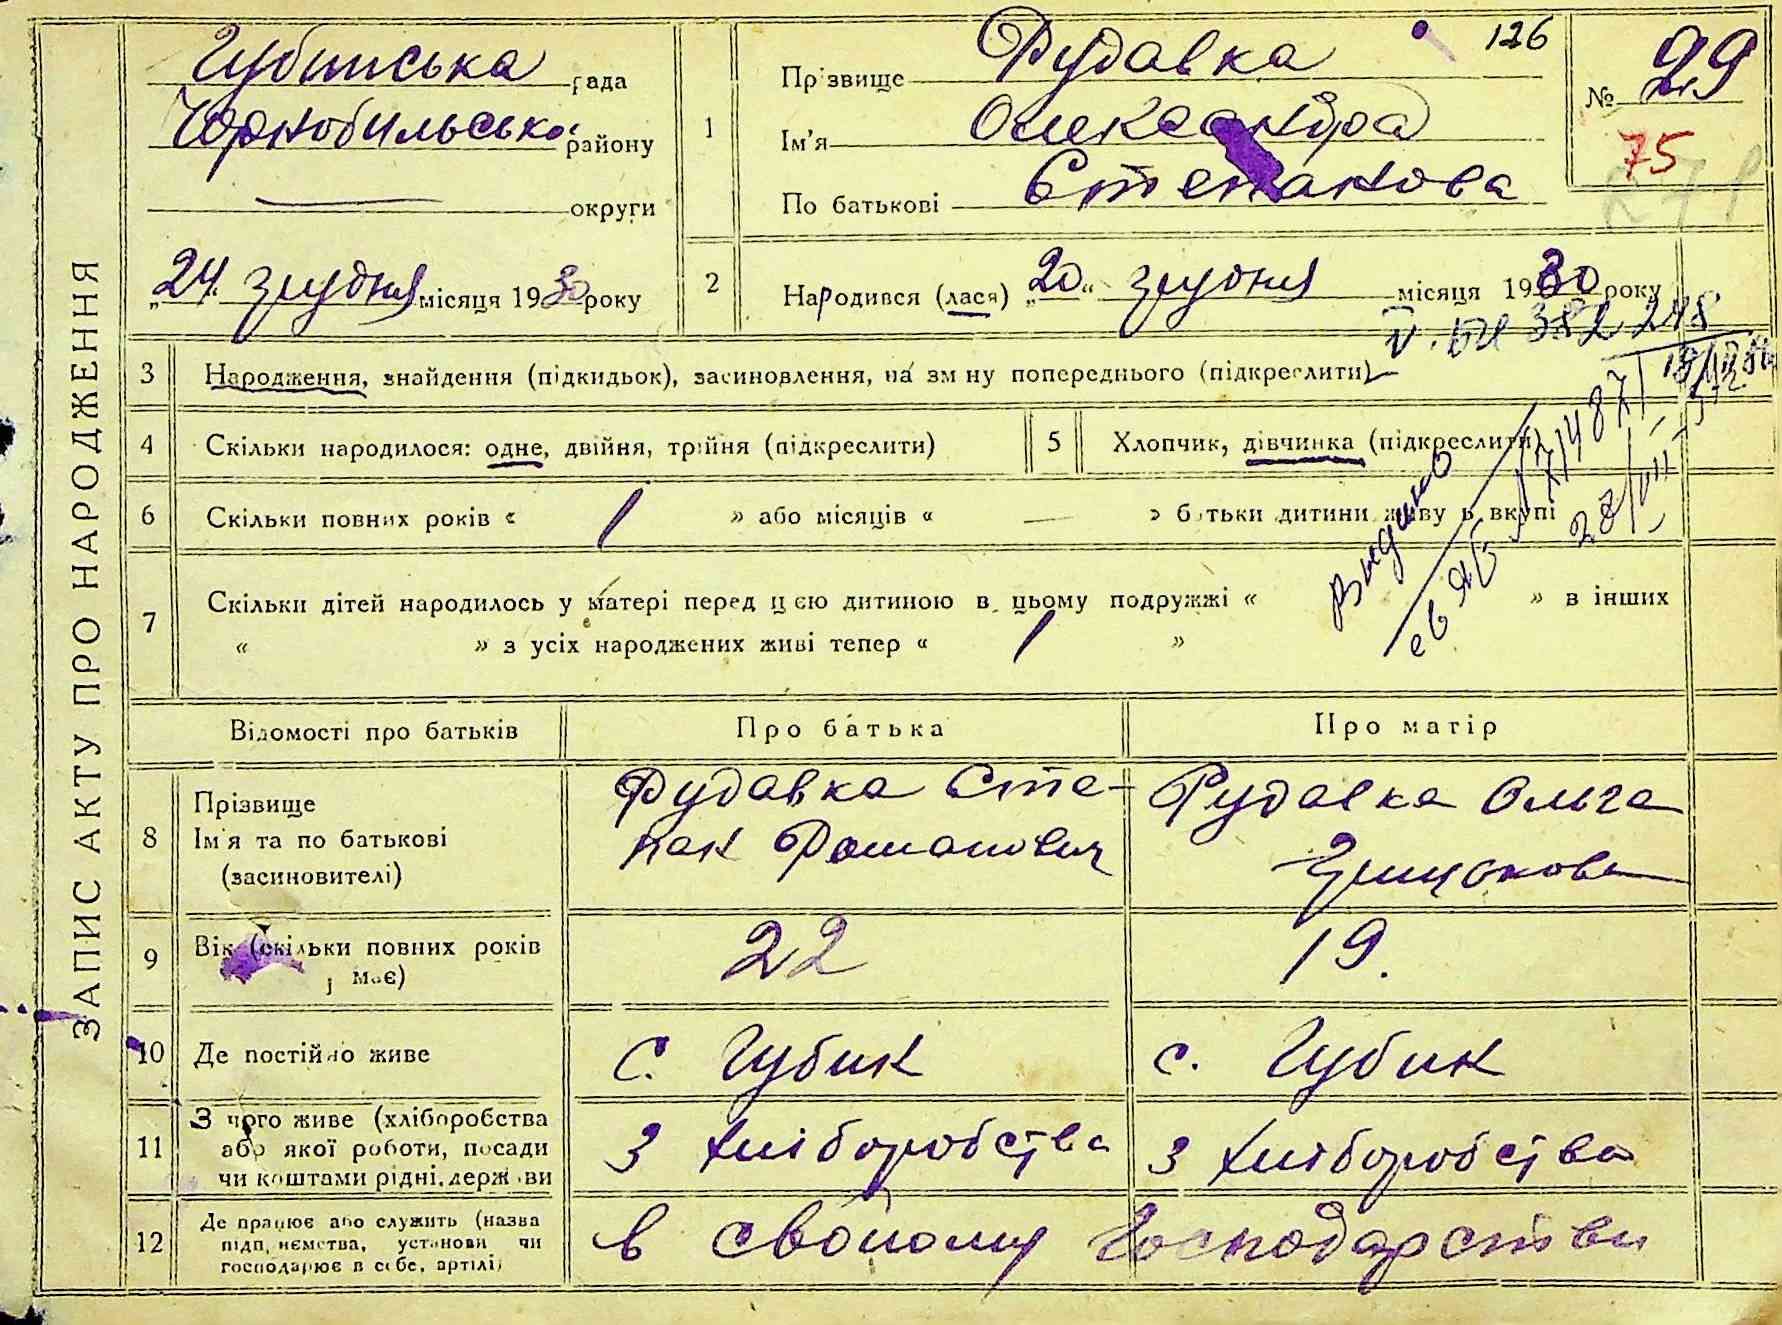 ЗАПИС АКТУ ПРО НАРОДЖЕННЯ
Губинська рада
Чорнобильсько. району
округи
„24“ грудня місяця 1930 року
1
Прізвище Рудавка
Ім'я Олександра
По батькові Степанова
126
№ 29
75
271
2
Народився (лася) „20“ грудня місяця 1930 року
382248
3
Народження, знайдення (підкидьок), засиновлення, на зміну попереднього (підкреслити)
4
Скільки народилося: одне, двійня, трійня (підкреслити)
5
Хлопчик, дівчинка (підкреслити)
6
Скільки повних років « 1 » або місяців « — » батьки дитини живуть вкупі
7
Скільки дітей народилось у матері перед цією дитиною в цьому подружжі « » в інших
« » з усіх народжених живі тепер « 1 »
Выдано
Відомості про батьків
Про батька
Про матір
8
Прізвище
Ім'я та по батькові
(засиновителі)
Рудавка Сте-
пан Романович
Рудавка Ольга
Грицькова
9
Вік (скільки повних років
має)
22
19.
10
Де постійно живе
с. Губин
с. Губин
11
З чого живе (хліборобства
або якої роботи, посади
чи коштами рідні, держави
З хліборобства
З хліборобства
12
Де працює або служить (назва
підприємства, установи чи
господарює в себе, артілі)
в свойому господарстви